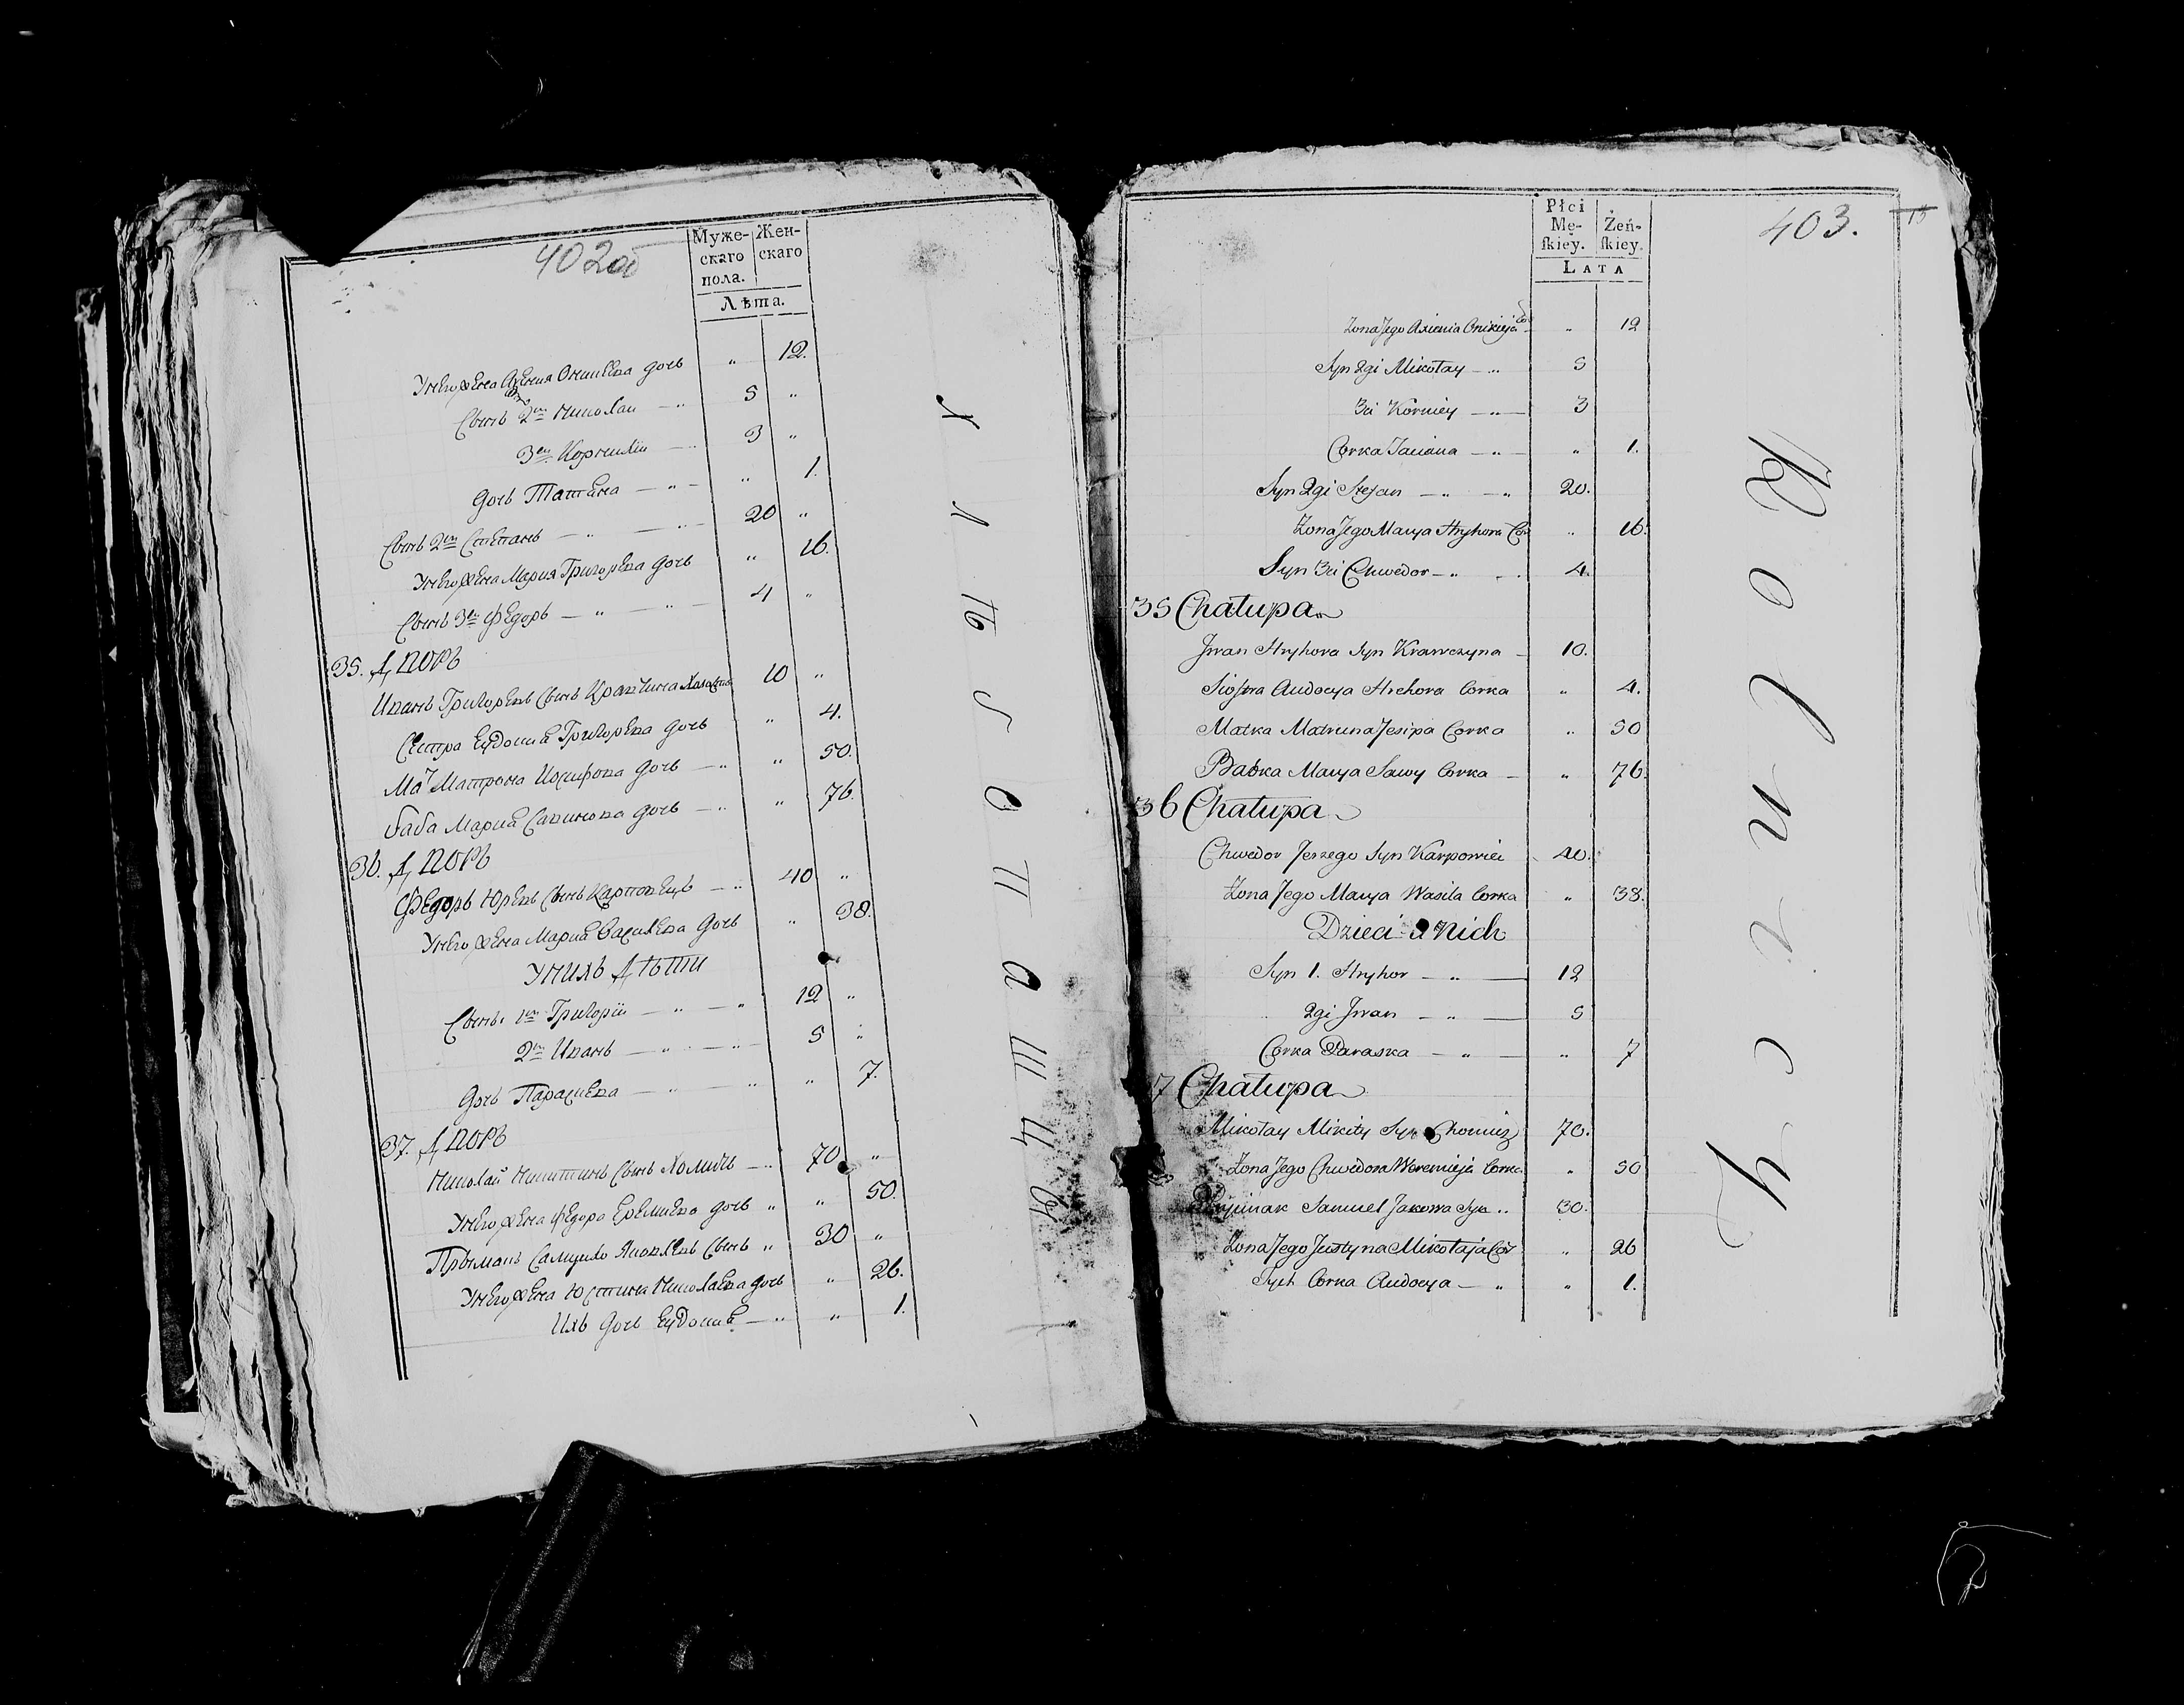 402об
Муже-
скаго
пола.
Жен-
скаго
Лѣта.
Унего жена Аксения Оникѣева дочь " 12.
Сынъ 2й Николай — " 5 "
3й Корнилій — 3 "
дочь Татиана — " — " 1.
Сынъ 2й Степанъ — " — " 20 "
Унего жена Мария Григорева дочь " 16.
Сынъ 3й Федоръ — " — " 4 "
35. Дворъ
Иванъ Григоревъ сынъ Кравчина 10 "
Сестра Евдокия Григорева дочь " 4.
Мать Матрона Иосифова дочь — " " 50.
баба Мария Савинова дочь — " " 76.
36. Дворъ
Федоръ Юревъ сынъ Карповецъ — " 40 "
Унего жена Мария Василева дочь " 38.
У нихъ дѣти
Сынъ 1й Григорій — " — " 12 "
2й Иванъ — " — " 5 "
дочь Параскева — " — " " 7.
37. Дворъ
Николай Никитинъ сынъ Хомичъ — " 70 "
Унего жена Федора Еремиева дочь " " 50.
Прымакъ Самуило Яковлевъ сынъ " 30 "
Унего жена Юстина Николаева дочь " 26.
Ихъ дочь Евдокия — " " 1.
Хлѣбопашцы
403.
15
Płci
Mę-
ſkiey.
Żeń-
ſkiey.
LATA
Zona Jego Axienia Onikieja Cor " 12
Syn 2gi Mikołay — " 5
3ci Korniey — " — 3
Corka Taciana — " — " 1.
Syn 2gi Stefan — " — " 20.
Zona Jego Marya Hryhora Cor " 16.
Syn 3ci Chwedor — " 4.
35 Chałupa
Jwan Hryhora Syn Krawczyna — 10.
Siostra Audocya Hrehora Corka " 4.
Matka Matruna Jesipa Corka " 50
Babka Marya Sawy Corka — " 76.
36 Chałupa
Chwedor Jerzego Syn Karpowiec 40.
Zona Jego Marya Wasila Corka " 38.
Dzieci z Nich
Syn 1. Hryhor — " — 12
2gi Jwan — " — 5
Corka Paraska — " — " 7
7 Chałupa
Mikołay Mikity Syn Chomicz 70.
Zona Jego Chwedora Weremieja Corka " 50
Pryjmak Samuel Jakowa Syn " 30.
Zona Jego Justyna Mikołaja Cor " 26
Tych Corka Audocya — " " 1.
Rolnicy